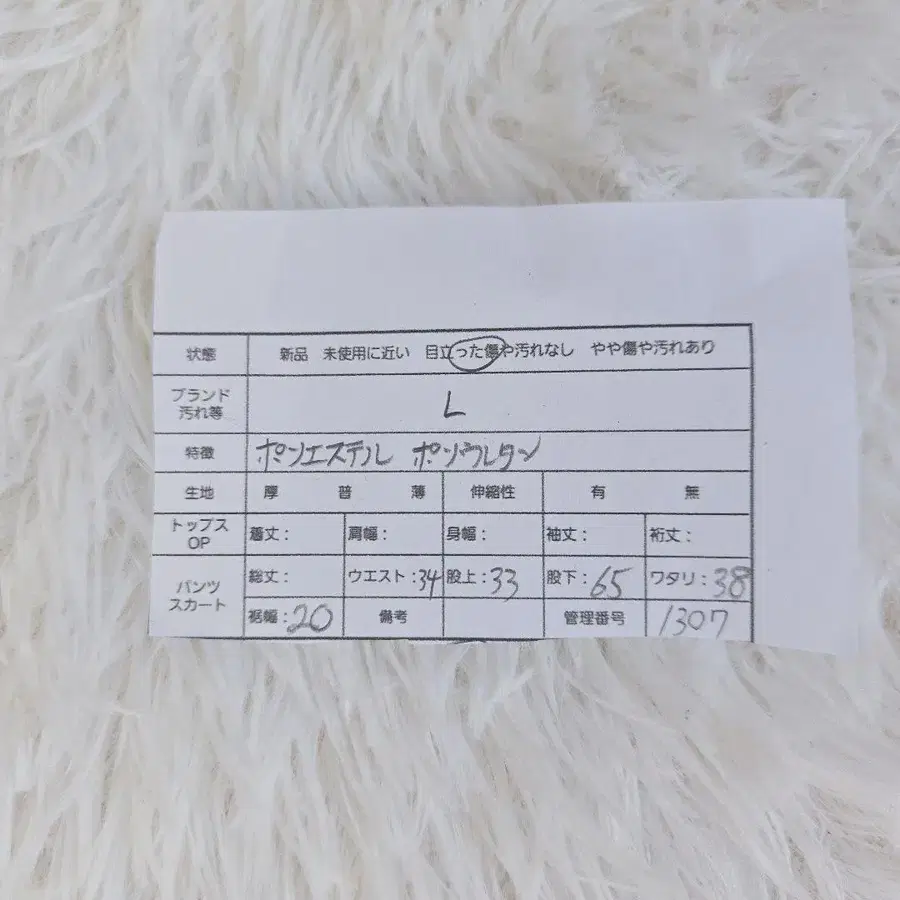 状態 新品 未使用に近い 目立った傷や汚れなし やや傷や汚れあり
ブランド
汚れ等 L
特徴 ポンエステル ポンウレタン
生地 厚 普 薄 伸縮性 有 無
トップス
OP 着丈: 肩幅: 身幅: 袖丈: 裄丈:
パンツ
スカート 総丈: ウエスト:34 股上:33 股下:65 ワタリ:38
裾幅:20 備考 管理番号 1307